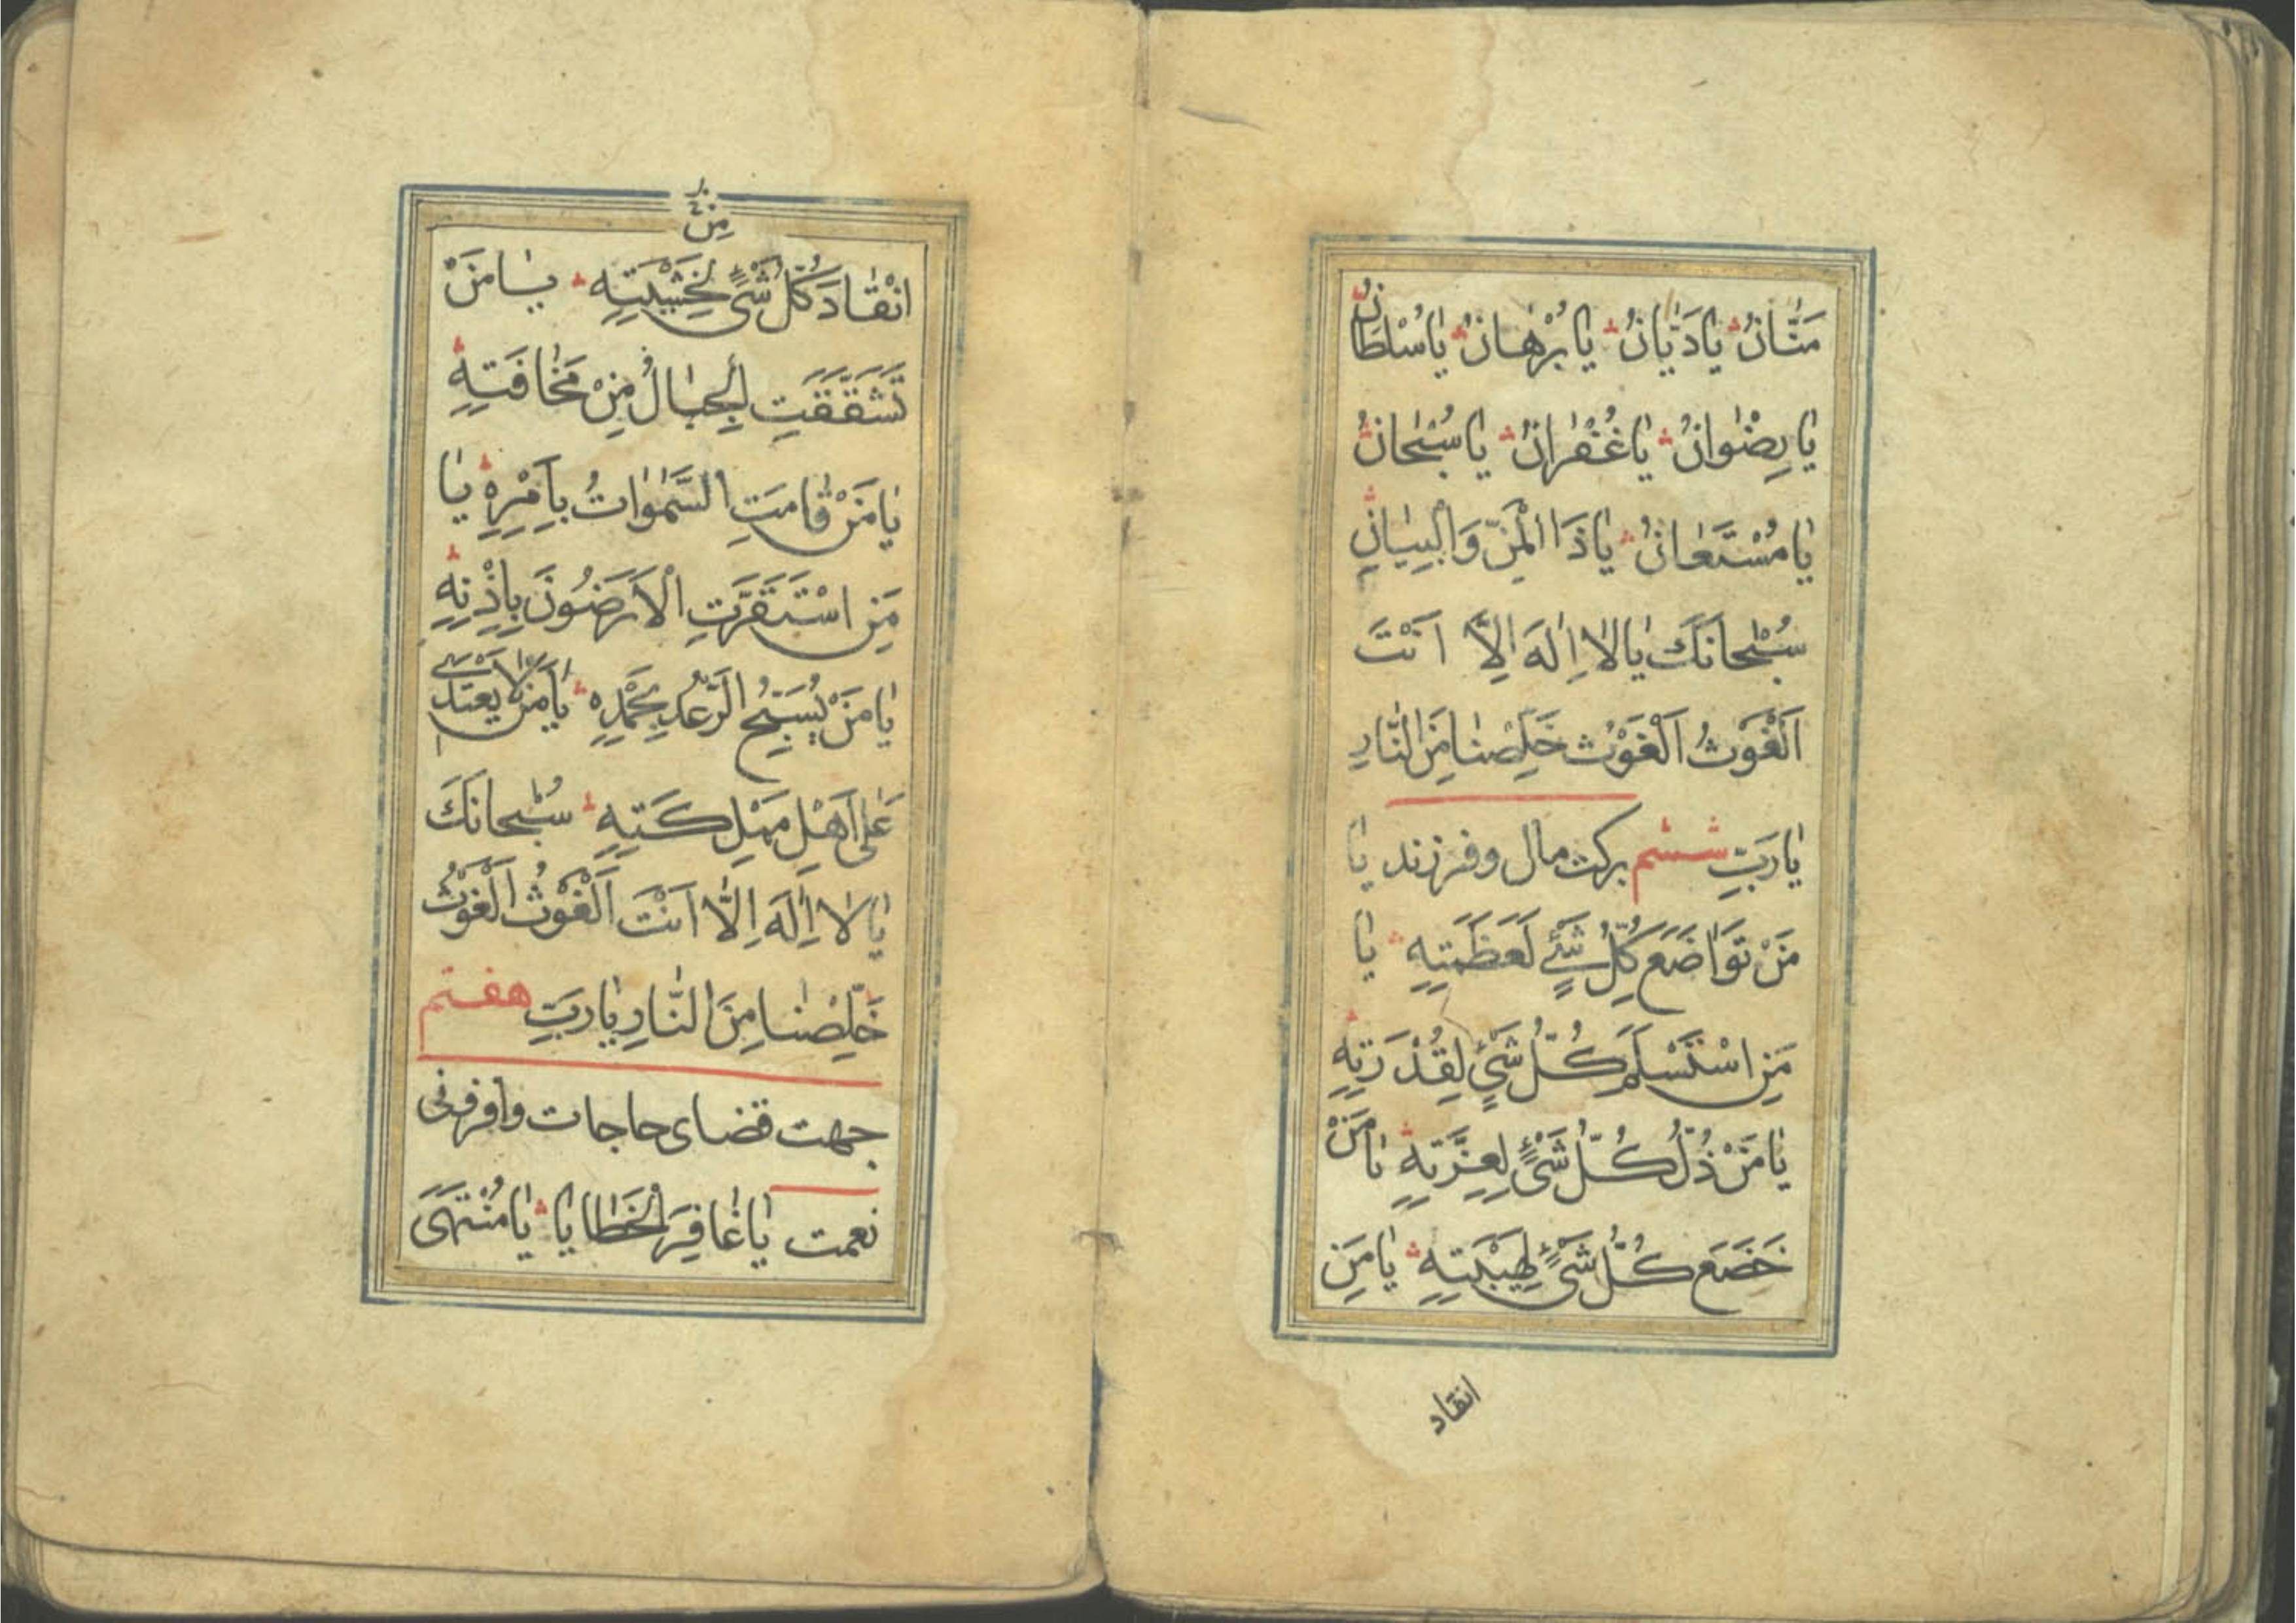 مَنّٰانُ يٰا دَيّٰانُ يٰا بُرْهٰانُ يٰا سُلْطٰانُ
يٰا رِضْوٰانُ يٰا غُفْرٰانُ يٰا سُبْحٰانُ
يٰا مُسْتَعٰانُ يٰا ذَا الْمَنِّ وَالْبَيٰانِ
سُبْحٰانَكَ يٰا لٰا اِلٰهَ اِلَّا اَنْتَ
اَلْغَوْثُ اَلْغَوْثُ خَلِّصْنٰا مِنَ النّٰارِ
يٰا رَبِّ ششم بركت مال و فرزند يٰا
مَنْ تَوٰاضَعَ كُلُّ شَيْءٍ لِعَظَمَتِهِ يٰا
مَنِ اسْتَسْلَمَ كُلُّ شَيْءٍ لِقُدْرَتِهِ
يٰا مَنْ ذُلَّ كُلُّ شَيْءٍ لِعِزَّتِهِ يٰا مَنْ
خَضَعَ كُلُّ شَيْءٍ لِهَيْبَتِهِ يٰا مَنِ
انقاد
مِنْ
انْقٰادَ كُلُّ شَيْءٍ لِخَشْيَتِهِ يٰا مَنْ
تَشَقَّقَتِ الْجِبٰالُ مِنْ مَخٰافَتِهِ
يٰا مَنْ قٰامَتِ السَّمٰوٰاتُ بِاَمْرِهِ يٰا
مَنِ اسْتَقَرَّتِ الْاَرَضُونَ بِاِذْنِهِ
يٰا مَنْ يُسَبِّحُ الرَّعْدُ بِحَمْدِهِ يٰا مَنْ لٰا يَعْتَدٖي
عَلٰى اَهْلِ مَمْلِكَتِهِ سُبْحٰانَكَ
يٰا لٰا اِلٰهَ اِلَّا اَنْتَ اَلْغَوْثُ اَلْغَوْثُ
خَلِّصْنٰا مِنَ النّٰارِ يٰا رَبِّ هفتم
جهت قضاى حاجات و افزونى
نعمت يٰا غٰافِرَ الْخَطٰايٰا يٰا مُنْتَهَى